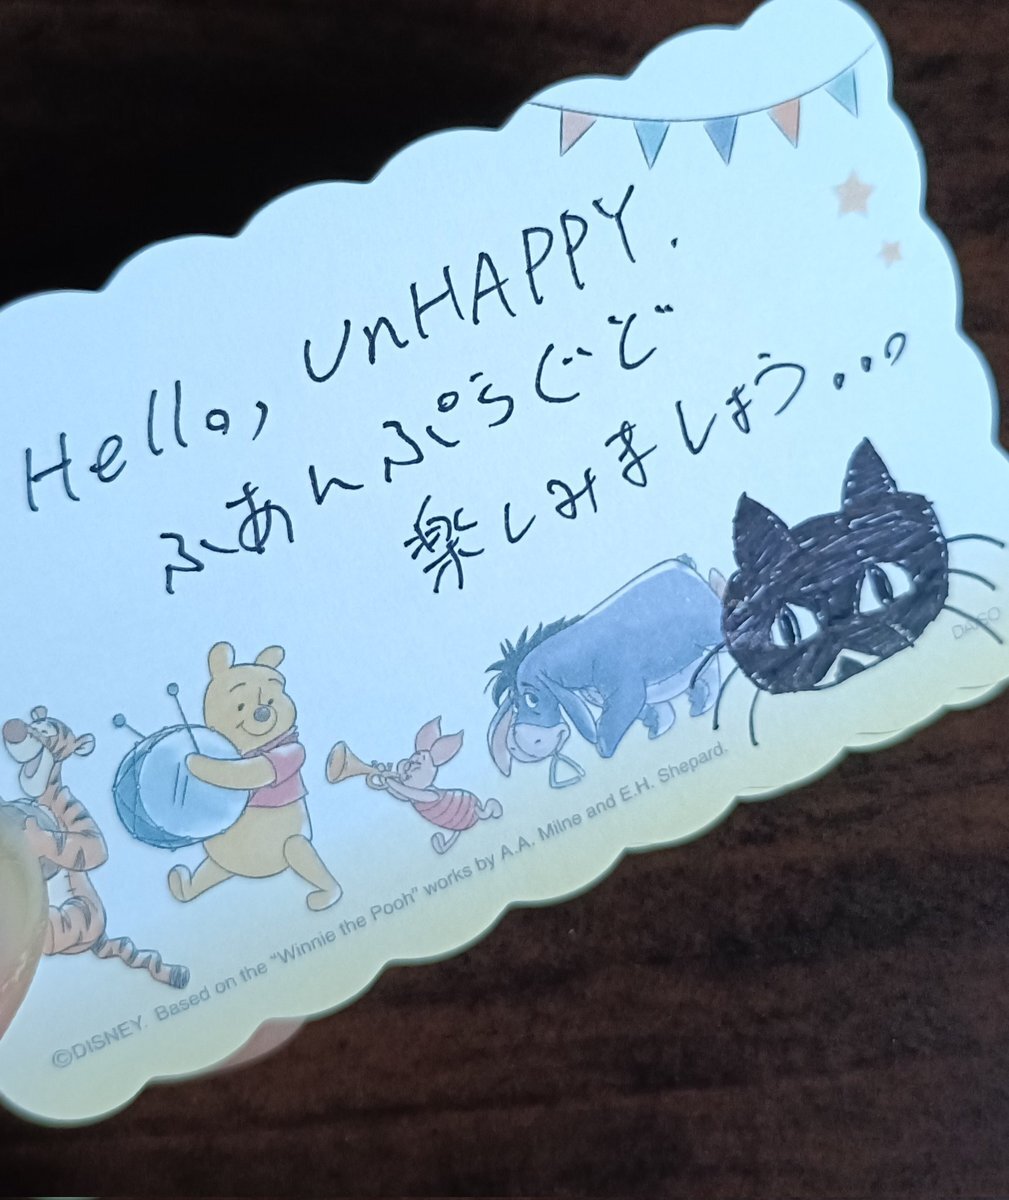 Hello, UnHAPPY.
ふあんぷらぐど
楽しみましょう...。
DAISO
©DISNEY. Based on the "Winnie the Pooh" works by A.A. Milne and E.H. Shepard.